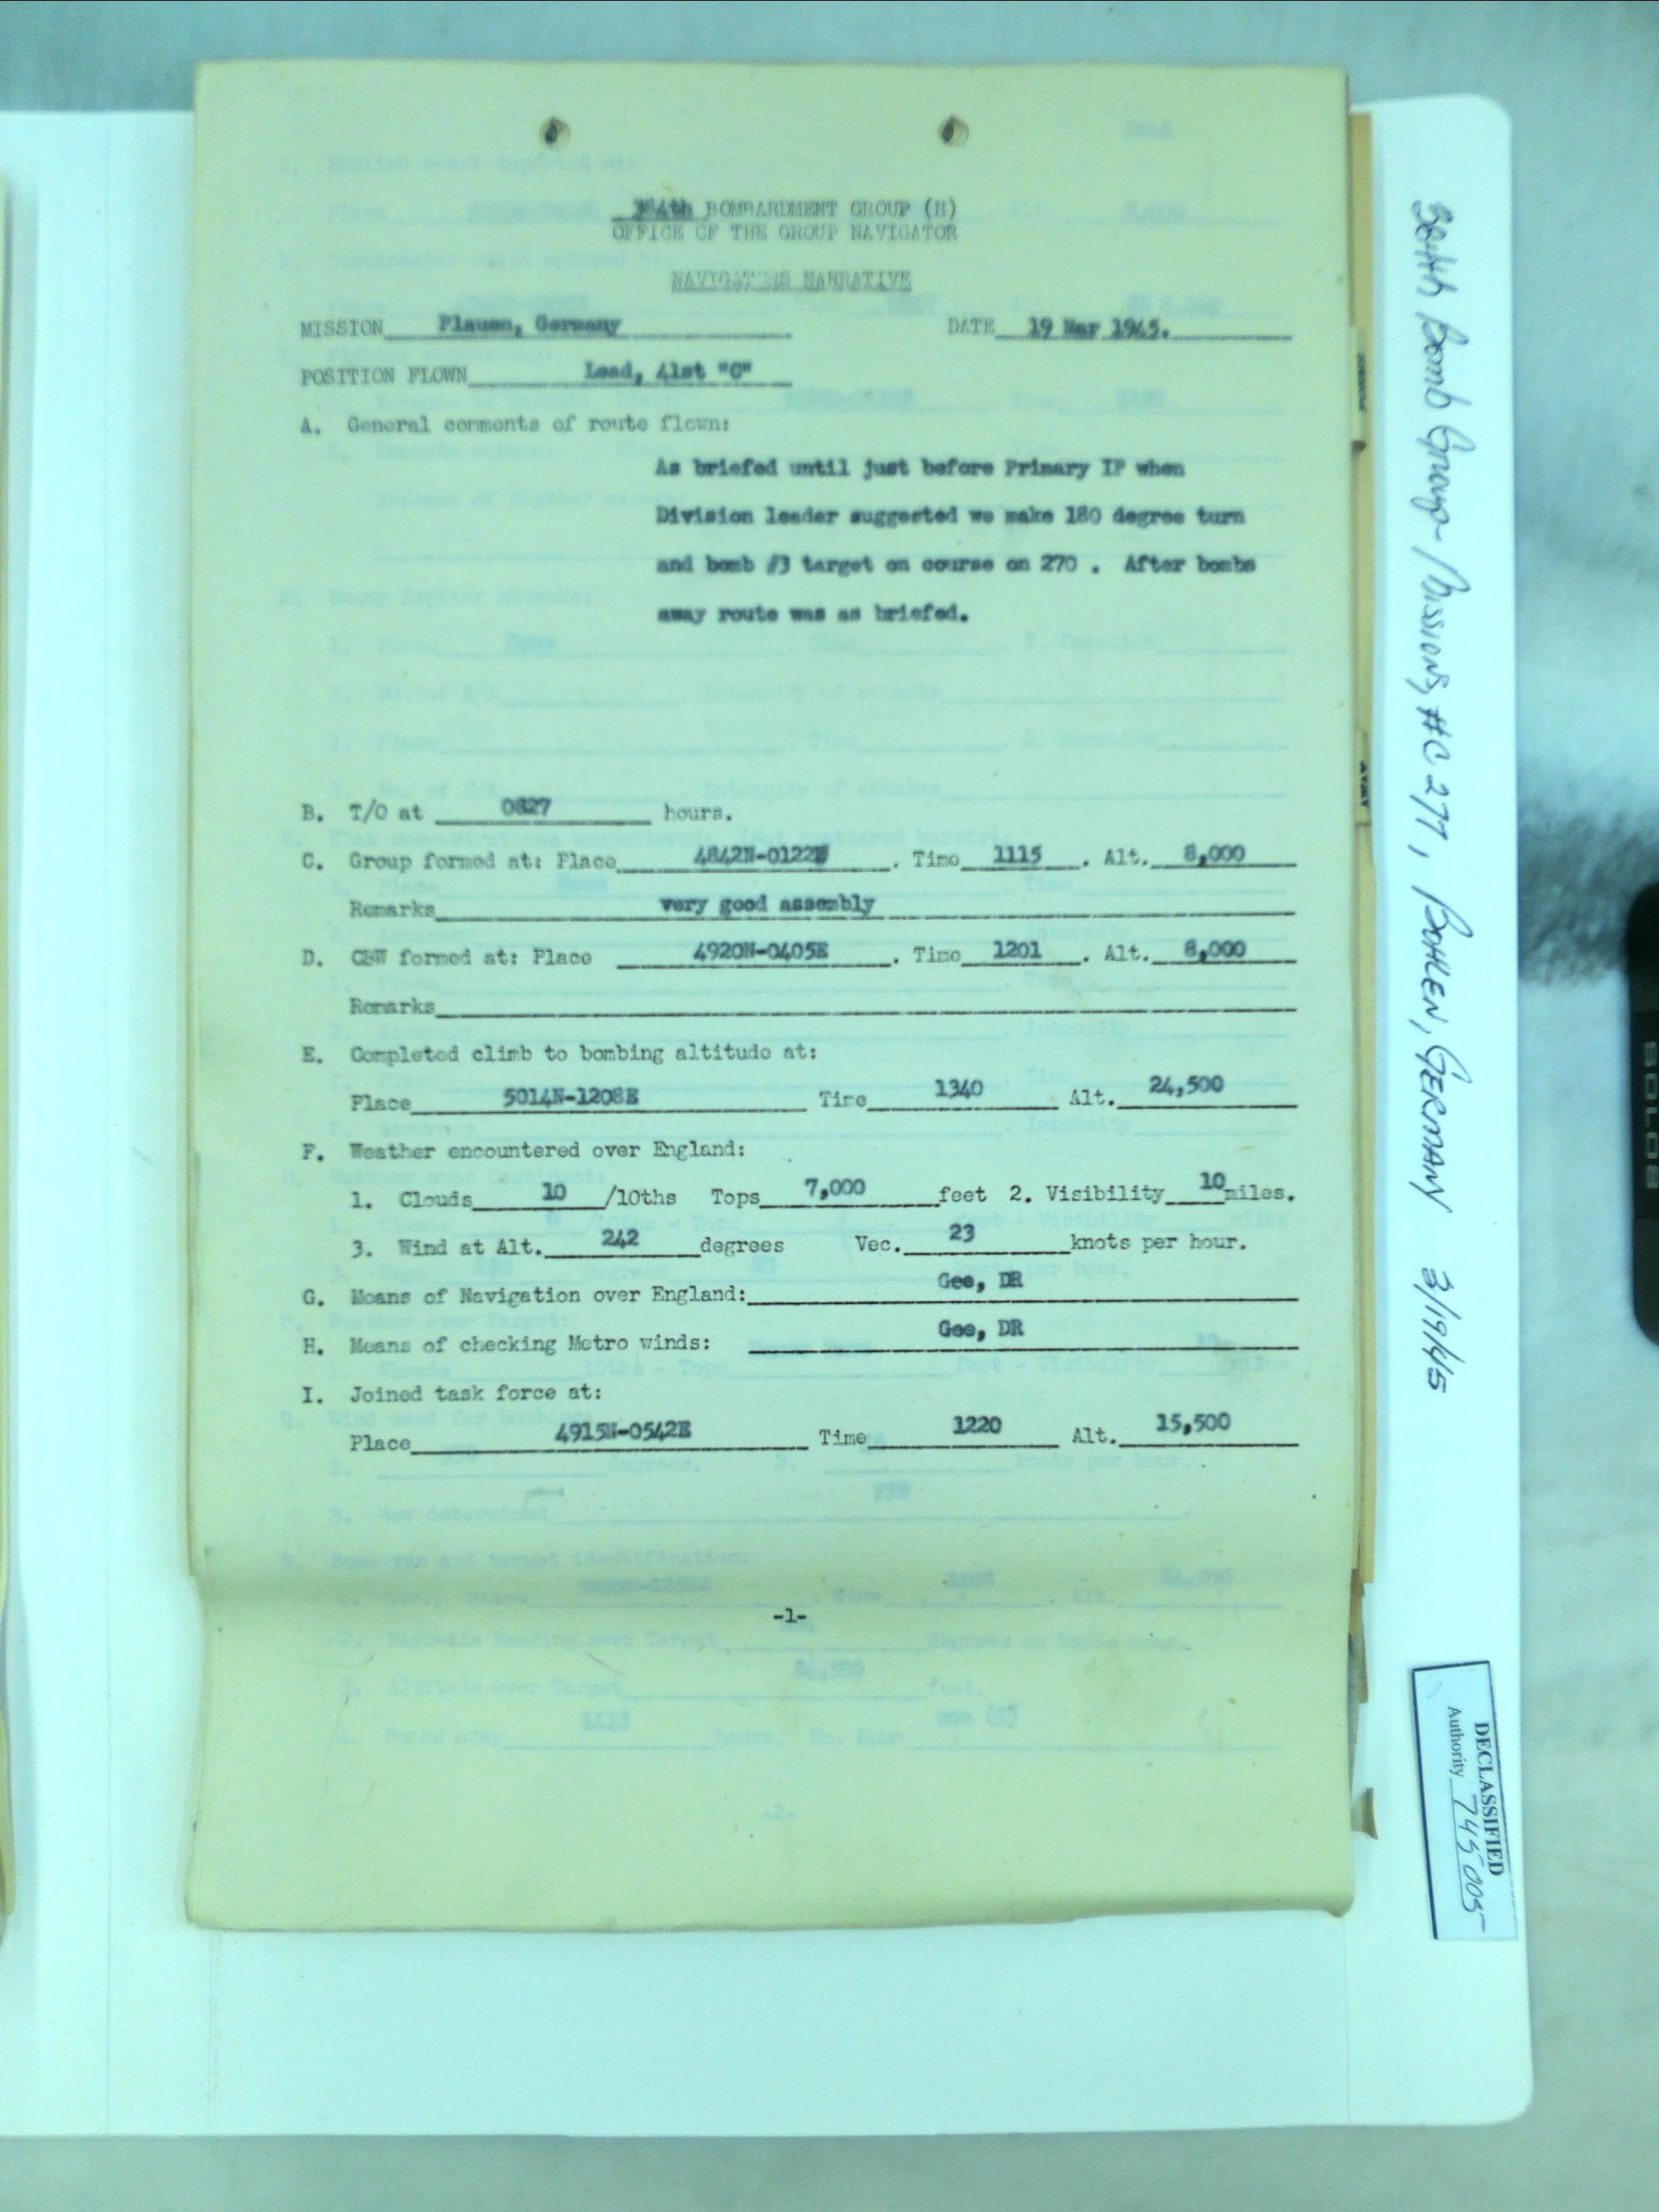 384th BOMBARDMENT GROUP (H)
OFFICE OF THE GROUP NAVIGATOR
NAVIGATORS NARRATIVE
MISSION Plauen, Germany DATE 19 Mar 1945.
POSITION FLOWN Lead, 41st "C"
A. General comments of route flown:
As briefed until just before Primary IP when
Division leader suggested we make 180 degree turn
and bomb #3 target on course on 270 . After bombs
away route was as briefed.
B. T/O at 0827 hours.
C. Group formed at: Place 4842N-0122W . Time 1115 . Alt. 8,000
Remarks very good assembly
D. CBW formed at: Place 4920N-0405E . Time 1201 . Alt. 8,000
Remarks
E. Completed climb to bombing altitude at:
Place 5014N-1208E Time 1340 Alt. 24,500
F. Weather encountered over England:
1. Clouds 10 /10ths Tops 7,000 feet 2. Visibility 10 miles.
3. Wind at Alt. 242 degrees Vec. 23 knots per hour.
G. Means of Navigation over England: Gee, DR
H. Means of checking Metro winds: Gee, DR
I. Joined task force at:
Place 4915N-0542E Time 1220 Alt. 15,500
-1-
384th Bomb Group - Missions, #C 277, BOHLEN, GERMANY 3/19/45
DECLASSIFIED
Authority 745005